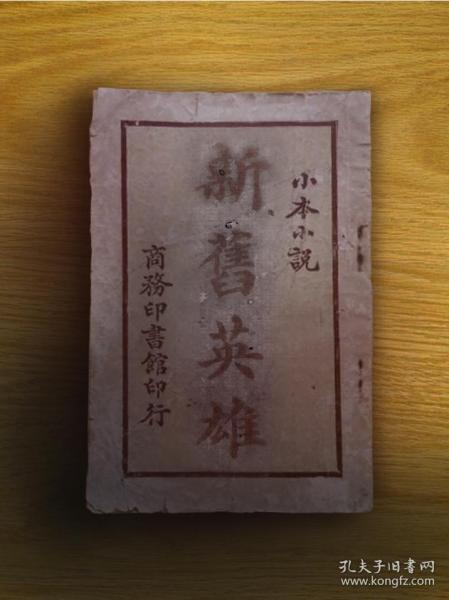 小本小説
新舊英雄
商務印書館印行
孔夫子旧书网
www.kongfz.com